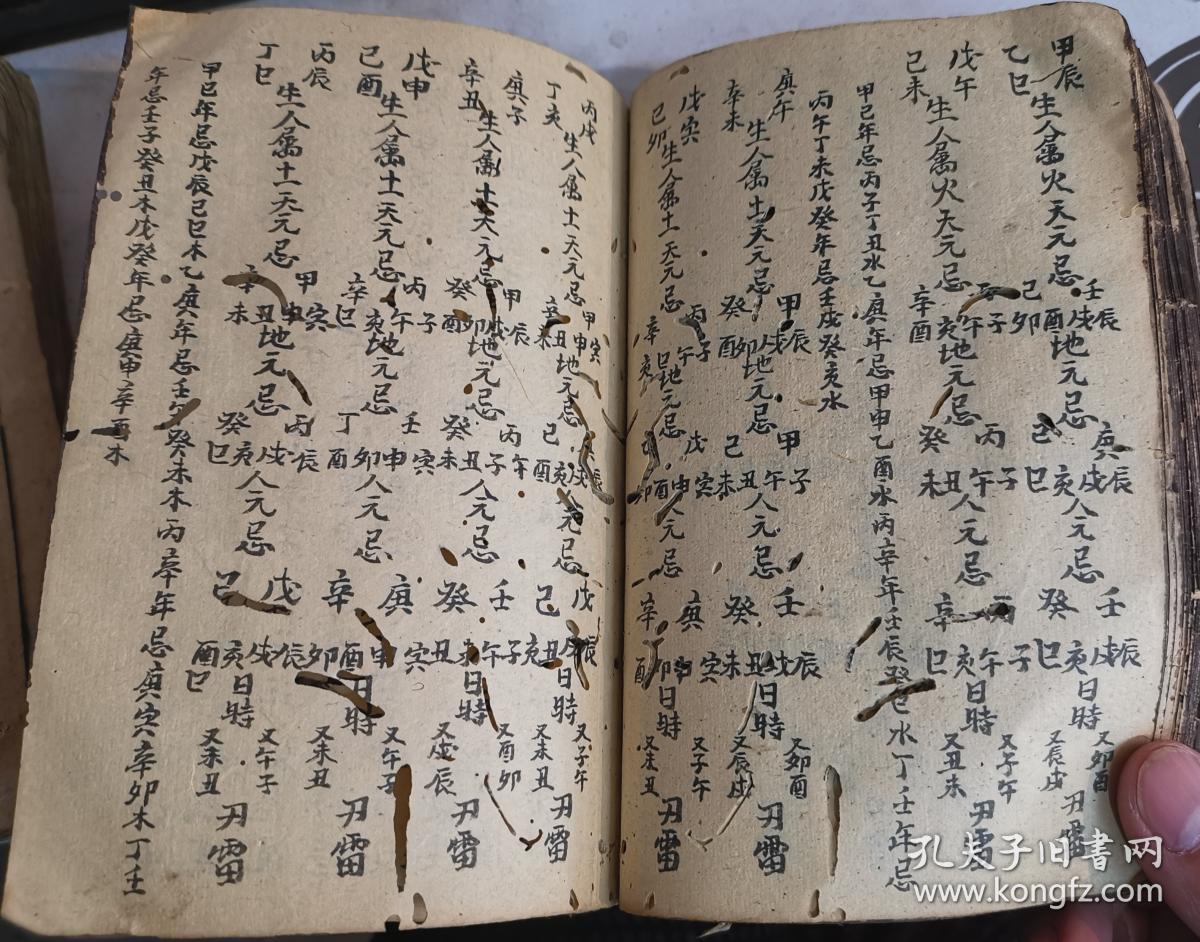 甲辰乙巳生人属火天元忌壬辰戌己酉卯地元忌庚辰戌己巳亥人元忌壬辰戌癸巳亥日時又卯酉又辰戌刃雷
戊午己未生人属火天元忌子午辛酉亥地元忌丙子午癸未丑人元忌丙子午辛巳亥日時又子午又丑未刃雷
甲己年忌丙子丁丑水乙庚年忌甲申乙酉水丙辛年壬辰癸巳水丁壬年忌
丙午丁未戊癸年忌壬戌癸亥水
庚午辛未生人属土天元忌甲辰戌癸酉卯地元忌甲子午己未丑人元忌壬辰戌癸未丑日時又卯酉又辰戌刃雷
戊寅己卯生人属土天元忌丙子午辛亥巳地元忌戊寅申酉卯人元忌庚寅申辛酉卯日時又子午又未丑刃雷
丙戌丁亥生人属土天元忌甲寅申辛未丑地元忌辰戌己酉亥人元忌戊辰己亥丑日時又子午又未丑刃雷
庚子辛丑生人属土天元忌甲辰戌癸酉卯地元忌丙午子癸未丑人元忌壬子午癸丑未日時又酉卯又戌辰刃雷
戊申己酉生人属土天元忌丙子午辛巳亥地元忌壬寅申丁酉卯人元忌庚寅申辛卯酉日時又午子又未丑刃雷
丙辰丁巳生人属土天元忌甲寅申辛未丑地元忌丙辰戌癸巳亥人元忌戊辰戌己酉亥巳日時又午子又未丑刃雷
甲己年忌戊辰己巳木乙庚年忌壬午癸未木丙辛年忌庚寅辛卯木丁壬
年忌壬子癸丑木戊癸年忌庚申辛酉木
孔夫子旧书网
www.kongfz.com